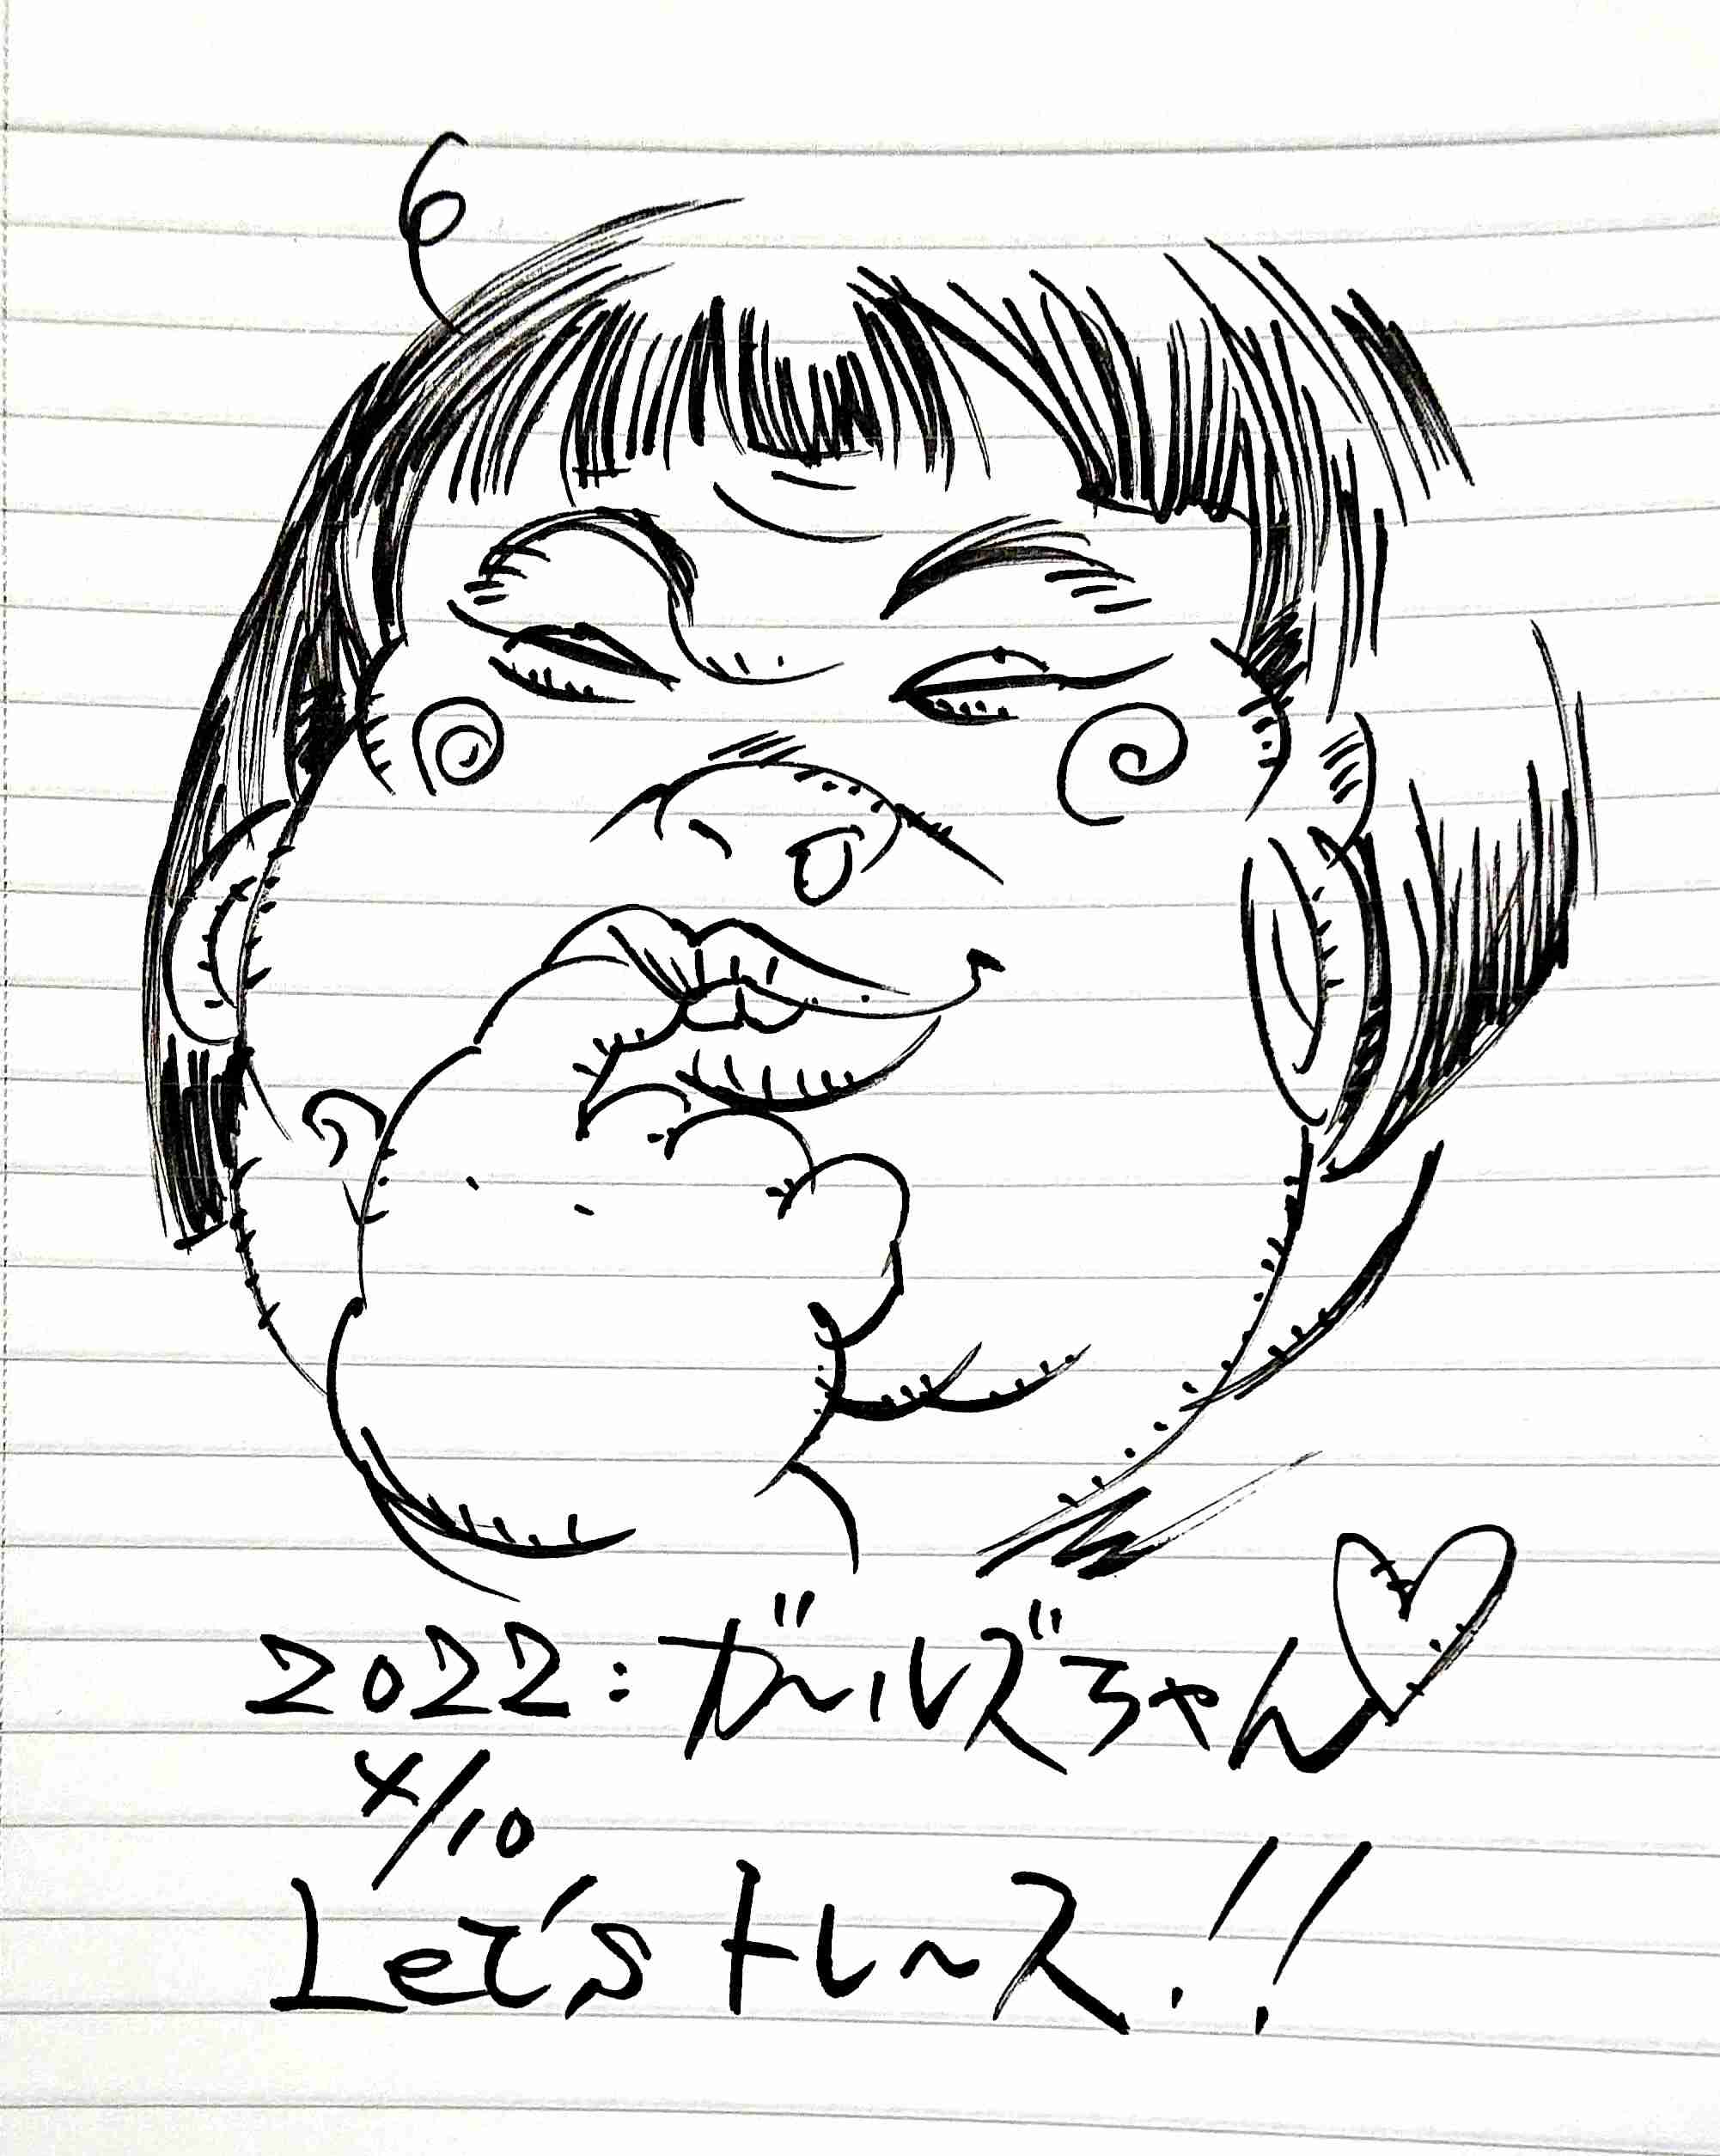 2022:ガ〜ルズちゃん♡
4/10
Let'sトレ〜ス!!